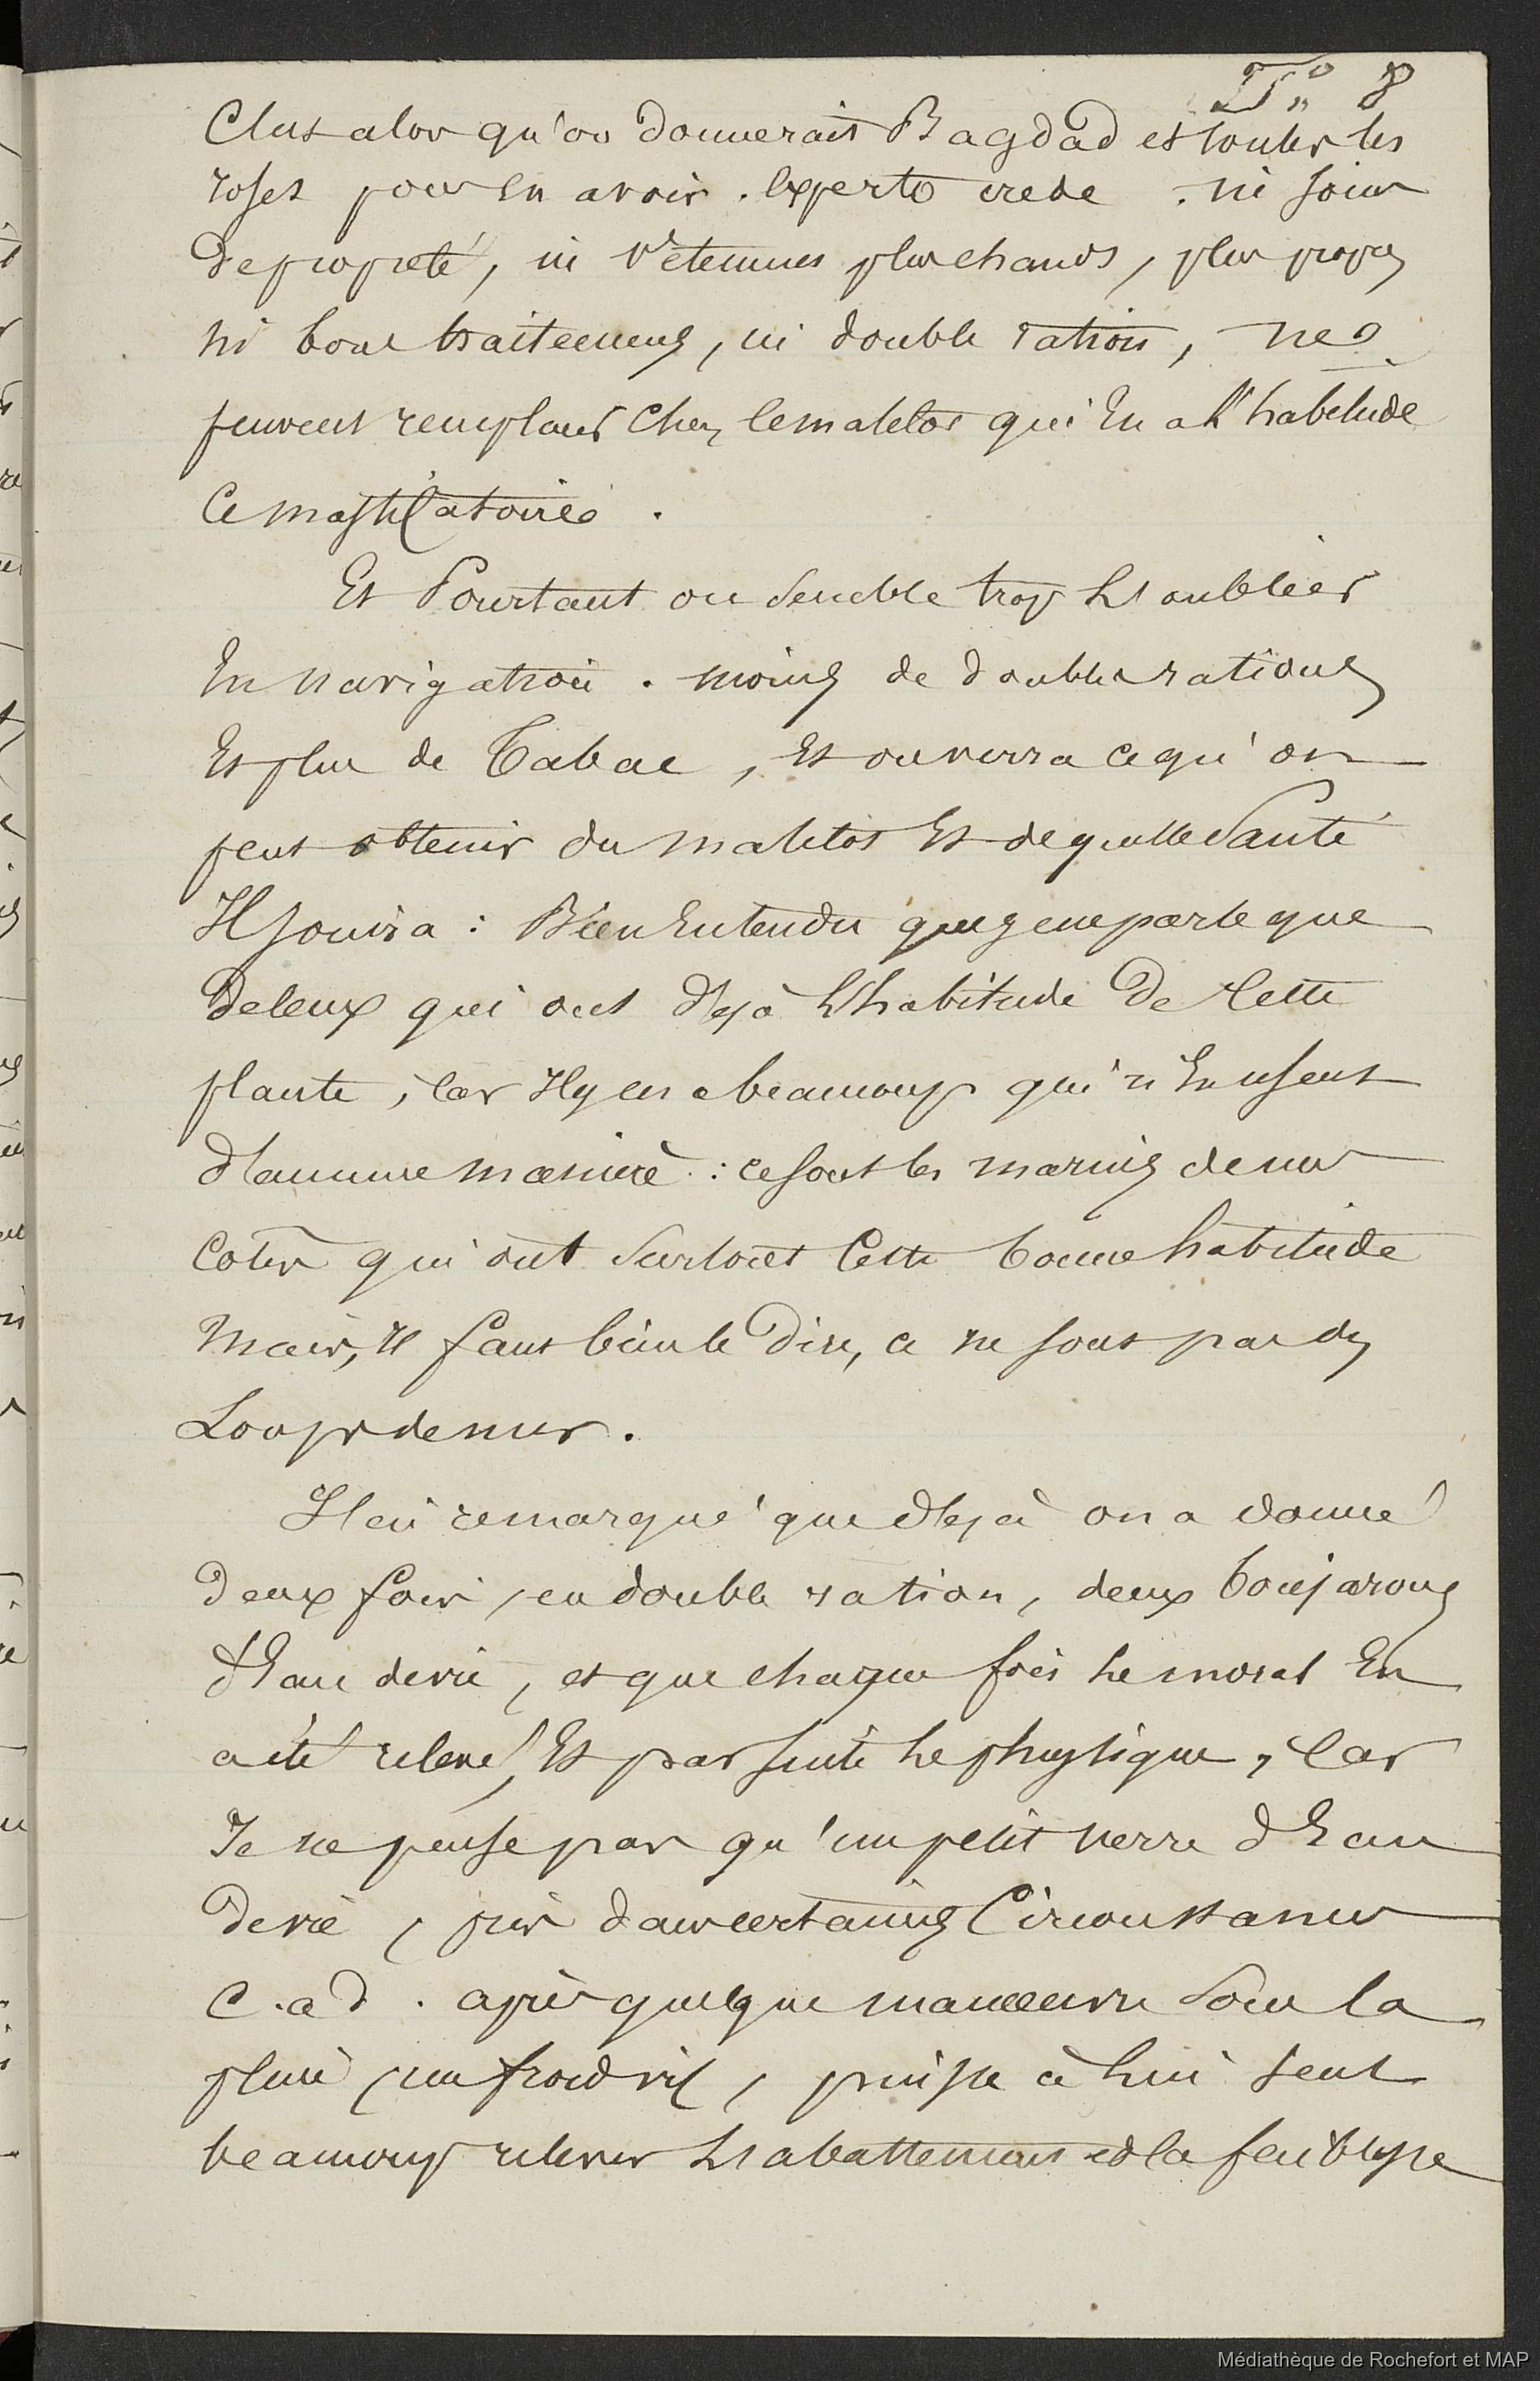 F° 8
C'est alors qu'on donnerait Bagdad et toutes les
roses pour en avoir. experto crede. ni soins
de propreté, ni vêtemens plus chauds, plus propres
ni bons traitemens, ni double ration, ne
peuvent remplacer chez le matelot qui en a l'habitude
ce masticatoire.
Et Pourtant on semble trop les oublier
En navigation. moins de doubles rations
Et plus de Tabac, Et on verra ce qu'on
peut obtenir du matelot Et de quelle Santé
Il jouira : Bien Entendu que je ne parle que
de ceux qui ont déjà l'habitude de cette
plante, car Il y en a beaucoup qui n'En usent
d'aucune manière : ce sont les marins de nos
Cotes qui ont surtout cette bonne habitude
Mais, Il faut bien le Dire, ce ne sont pas des
Loups de mer.
Il est remarqué que déjà on a donné
Deux fois, en double ration, deux boujarons
d'Eau de vie, et que chaque fois le moral En
a été relevé, Et par suite le physique, Car
Je ne pense pas qu'un petit verre d'Eau
de vie, pris dans certaines Circonstances
C. a d. après quelque manœuvre sous la
pluie, un froid vif, puisse à lui seul
beaucoup relever les abattemens et la faiblesse
Médiathèque de Rochefort et MAP